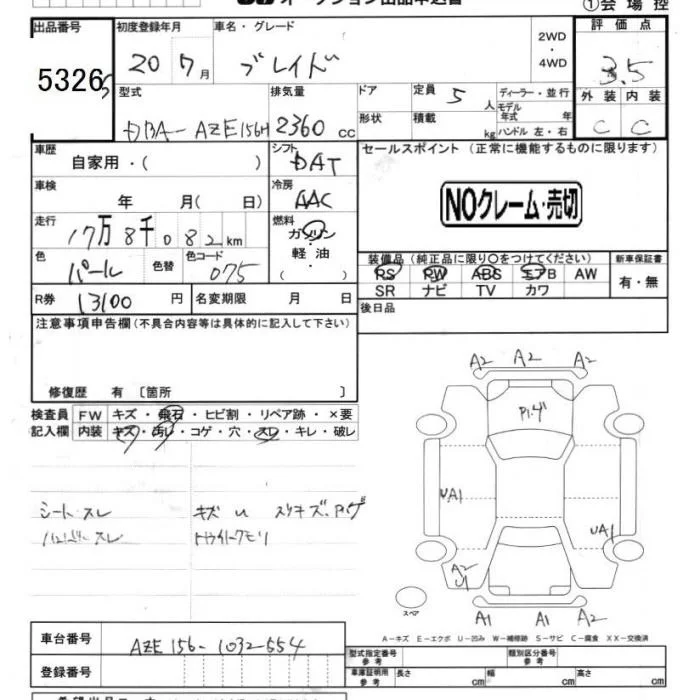 ①会場控
出品番号
53265
初度登録年月
20 7月
車名・グレード
ブレイド
2WD
・
4WD
評価点
3.5
外装 内装
C C
型式
DBA-AZE156H
排気量
2360 cc
ドア
形状
定員 5人
積載 kg
ディーラー・並行
モデル年式 年
ハンドル 左・右
車歴
自家用・( )
シフト
DAT
セールスポイント (正常に機能するものに限ります)
NOクレーム・売切
車検
年 月( 日)
冷房
AAC
走行
17万8千082km
燃料
ガソリン
軽油
( )
色
パール
色替
色コード
075
装備品 (純正品に限り○をつけてください)
RS PW ABS エアB AW
SR ナビ TV カワ
新車保証書
有・無
R券 13100円
名変期限 月 日
後日品
注意事項申告欄(不具合内容等は具体的に記入して下さい)
修復歴 有 〔箇所 〕
検査員記入欄
FW キズ・飛石・ヒビ割・リペア跡・×要
内装 キズ・汚レ・コゲ・穴・スレ・キレ・破レ
シートスレ
キズ u スリキズ.
A2 A2 A2
UA1
UA1
A2
A1 A1 A2
スペア
A-キズ E-エクボ U-凹み W-補修跡 S-サビ C-腐食 XX-交換済
車台番号
AZE156-1032554
登録番号
型式指定番号 参考
類別区分番号 参考
車体証明用 参考
長さ cm 幅 cm 高さ cm